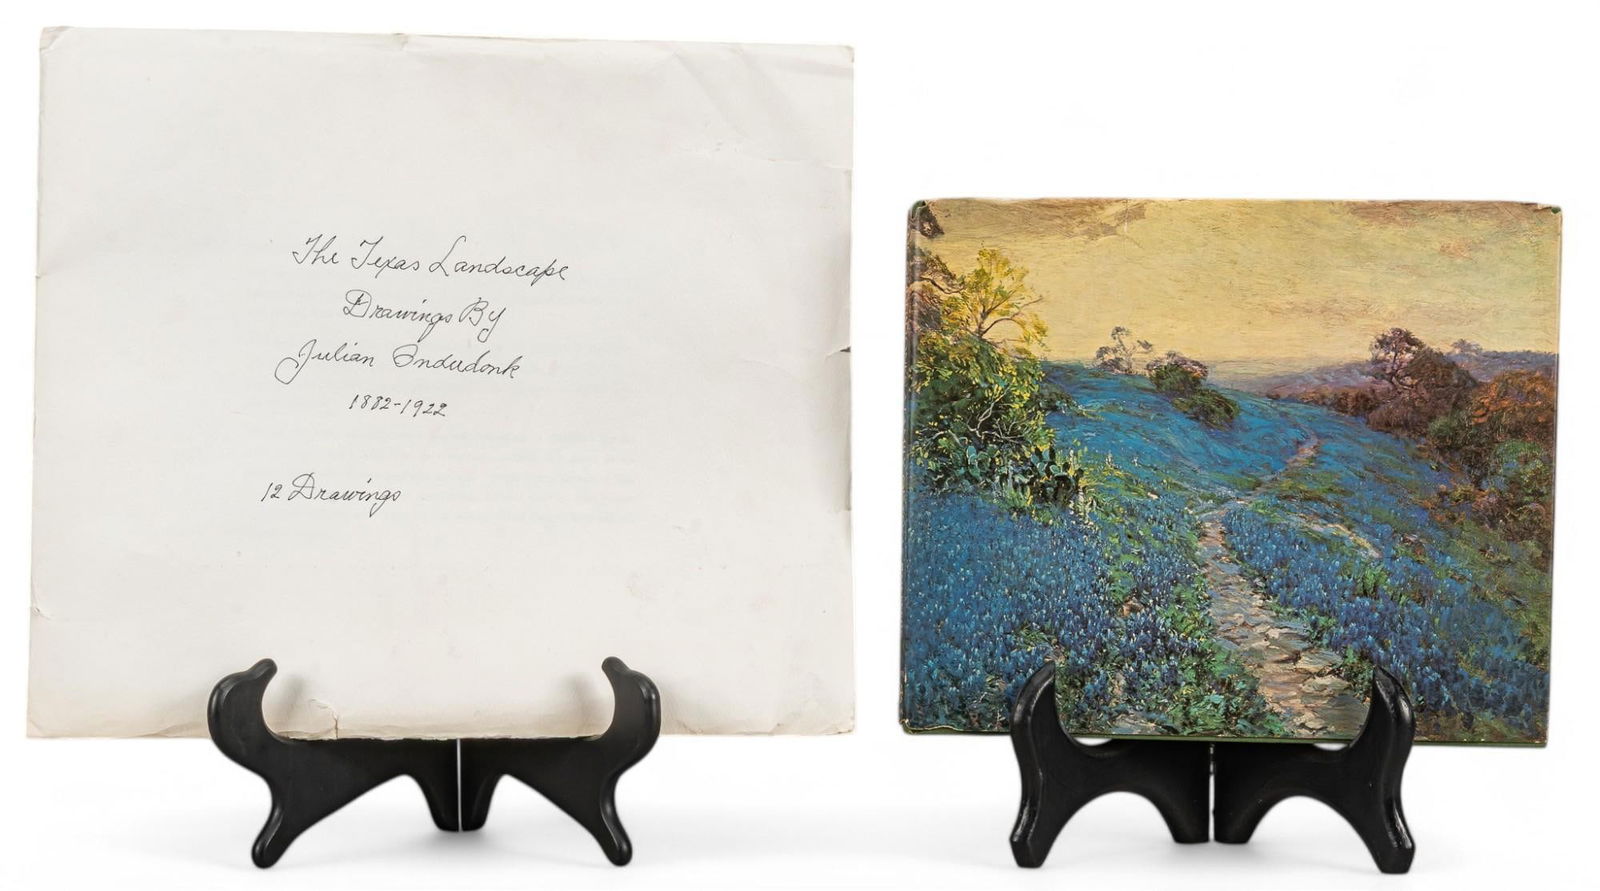 The Texas Landscape
Drawings By
Julian Onderdonk
1882-1922
12 Drawings